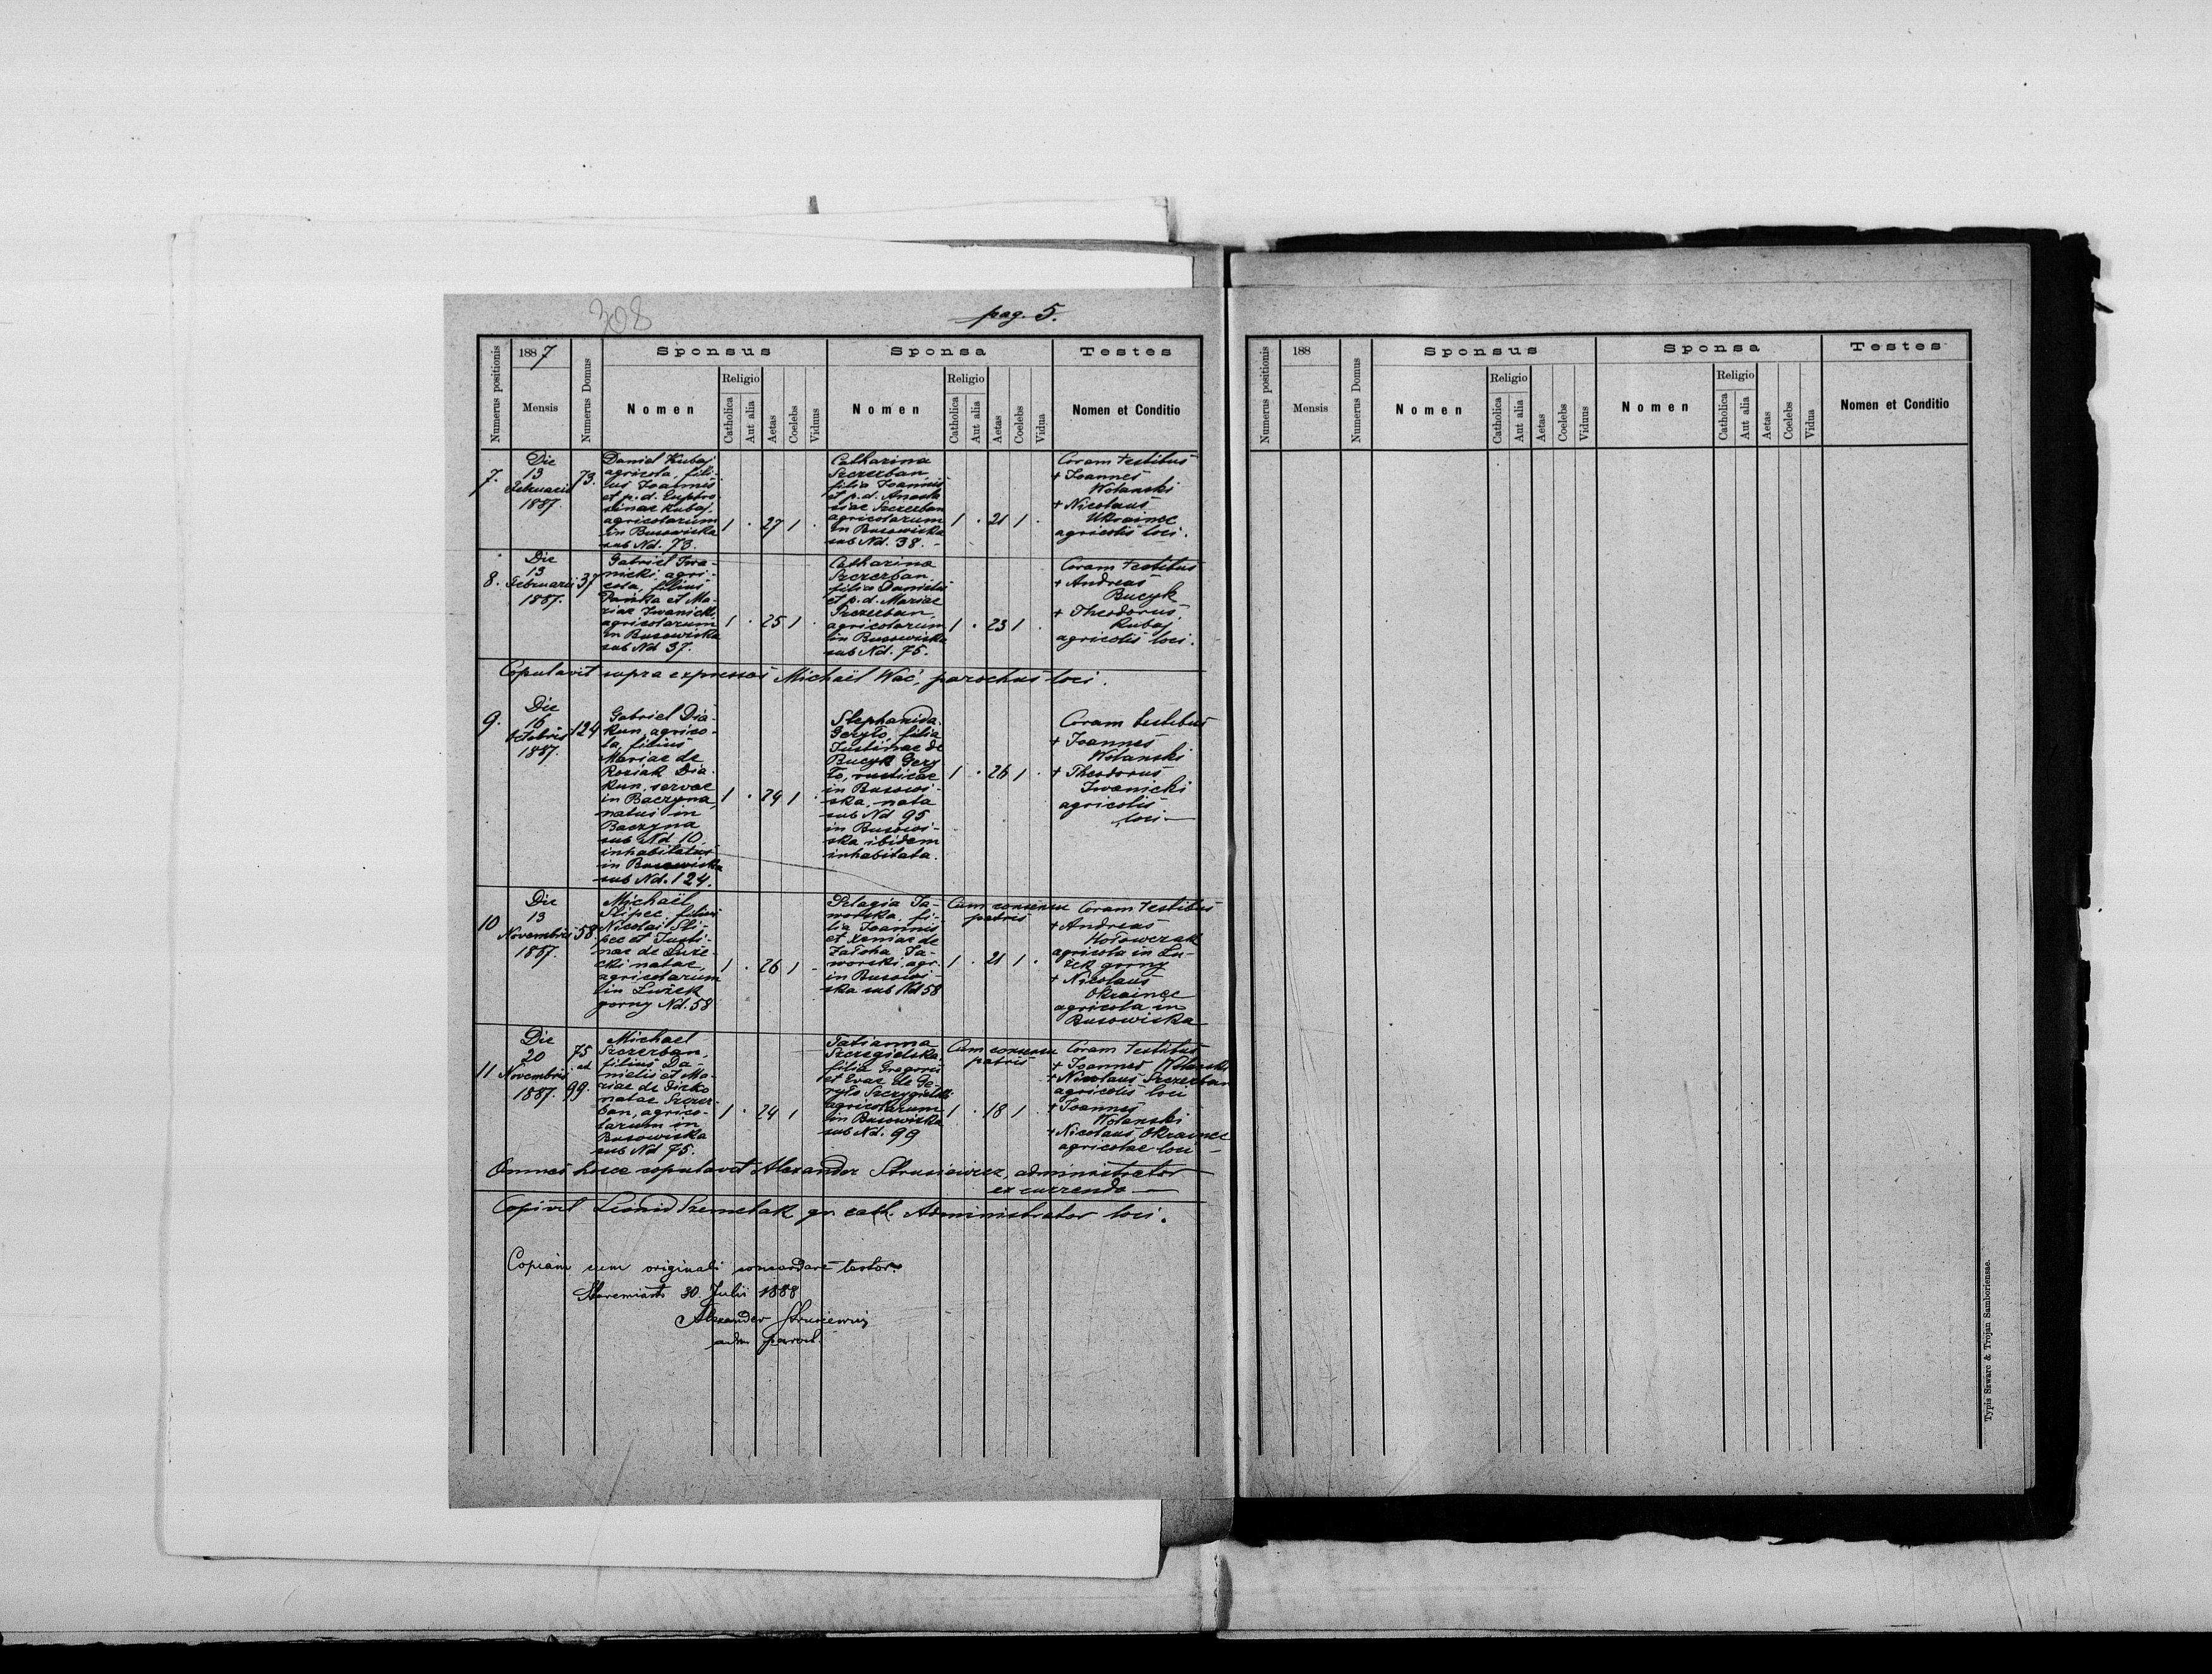 308
pag. 5.
Numerus positionis
1887
Mensis
Numerus Domus
Sponsus
Nomen
Religio
Catholica
Aut alia
Aetas
Coelebs
Viduus
Sponsa
Nomen
Religio
Catholica
Aut alia
Aetas
Coelebs
Vidua
Testes
Nomen et Conditio
7.
Die
13
Februarii
1887.
73.
Daniel Kubaj
agricola, fili-
us Joannis
et p. d. Euphro
sinae Kubaj.
agricolarum
in Busowiska
sub Nd. 73.
1 . 27 1 .
Catharina
Szczerban
filia Joannis
et p. d. Anasta
siae Szczerban
agricolarum
in Busowiska
sub Nd. 38. -
1 . 21 1 .
Coram testibus
+ Joannes
Wolanski
+ Nicolaus
Ukraince
agricolis loci.
8.
Die
13
Februarii
1887.
37
Gabriel Iwa-
nicki, agri-
cola, filius
Pańka et Ma-
riae Iwanicki,
agricolarum
in Busowiska
sub Nd 37.
1 . 25 1 .
Catharina
Szczerban,
filia Danielis
et p. d. Mariae
Szczerban,
agricolarum
in Busowiska
sub Nd. 75.
1 . 23 1 .
Coram testibus
+ Andreas
Bucyk
+ Theodorus
Kubaj
agricolis loci.
Copulavit supra expressos Michaël Wać, parochus loci.
9.
Die
16
Octobris
1887.
124
Gabriel Dia-
kun, agrico-
la, filius
Mariae de
Roziak Dia-
kun, servae
in Baczyna,
natus in
Baczyna
sub Nd 10,
inhabitatus
in Busowiska
sub Nd. 124.
1 . 24 1 .
Stephanida
Geryło, filia
Justinae de
Bucyk Gery
ło, rusticae
in Busowi-
ska, nata
sub Nd 95
in Busowi-
ska ibidem
inhabitata.
1 . 26 1 .
Coram testibus
+ Joannes
Wolanski
+ Theodorus
Iwanicki
agricolis
loci
10
Die
13
Novembris
1887.
58.
Michaël
Slipec, filius
Nicolai Sli-
pec et Justi-
nae de Luże-
cki natae,
agricolarum
in Lużek
gorny Nd. 58
1 . 26 1 .
Pelagia Ja-
worska, fi-
lia Joannis
et Xeniae de
Załoha Ja-
worski, agr.
in Busowi-
ska sub Nd 58
Cum consensu
patris
1 . 21 1 .
Coram testibus
+ Andreas
Hołowczak
agricola in Lu-
żek gorny
+ Nicolaus
Okraince
agricola in
Busowiska
11
Die
20
Novembris
1887.
75
ad
99.
Michael
Szczerban,
filius Da-
nielis et Ma-
riae de Dziko
natae Szczer-
ban, agrico-
larum in
Busowiska
sub Nd 75.
1 . 24 1
Tatianna
Szczegielska,
filia Gregorii
et Evae de Ge-
ryło Szczygielski
agricolarum
in Busowiska
sub Nd. 99
Cum consensu
patris
1 . 18 1 .
Coram testibus
+ Joannes Wolanski
+ Nicolaus Szczerban
agricolis loci
+ Joannes
Wolanski
+ Nicolaus Okraince
agricolae loci
Omnes hosce copulavit Alexander Strusiewicz, administrator
excurrendo
Copivit Leonid Szemelak gr. cath. Administrator loci.
Copiam cum originali concordare testor.
Staremiasto 30. Julii 1888
Alexander Strusiewicz
adm paroch.
Numerus positionis
188
Mensis
Numerus Domus
Sponsus
Nomen
Religio
Catholica
Aut alia
Aetas
Coelebs
Viduus
Sponsa
Nomen
Religio
Catholica
Aut alia
Aetas
Coelebs
Vidua
Testes
Nomen et Conditio
Typis Szwarc & Trojan Samboriensae.